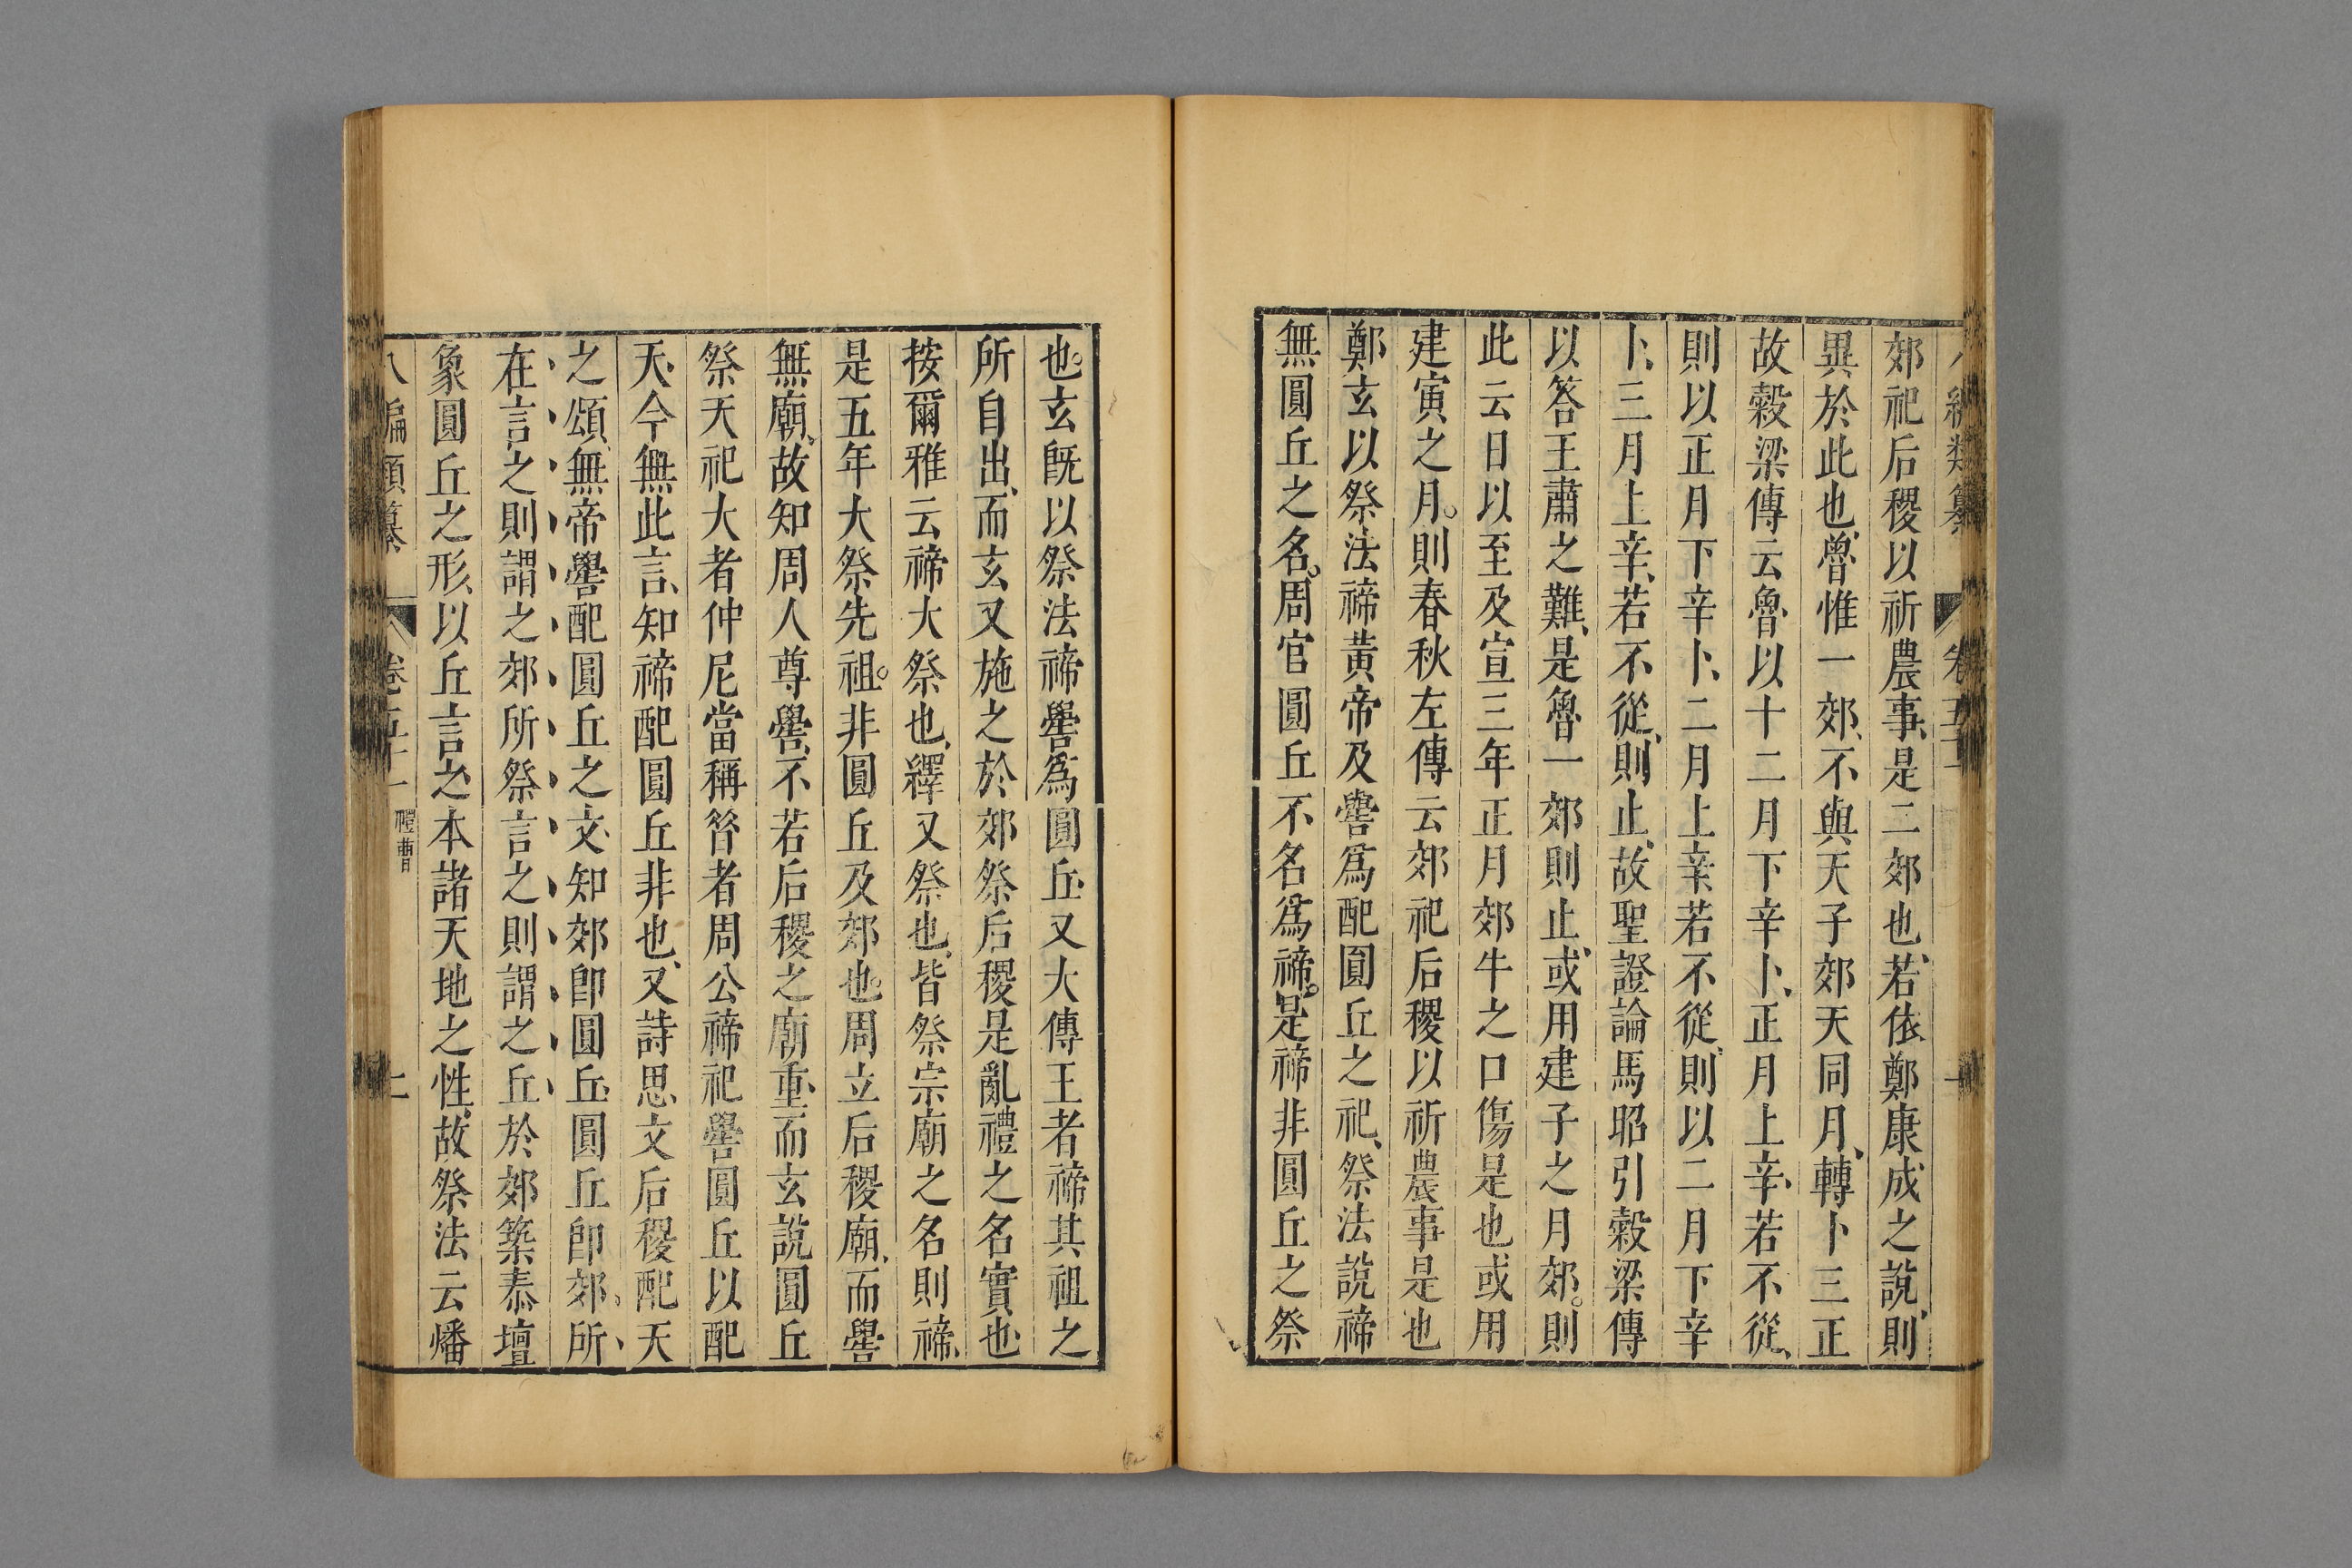 郊祀后稷以祈農事、是二郊也、若依鄭康成之說、則
異於此也、魯惟一郊、不與天子郊天同月、轉卜三正
故穀梁傳云魯以十二月下辛卜、正月上辛、若不從、
則以正月下辛卜、二月上辛、若不從、則以二月下辛
卜、三月上辛、若不從、則止、故聖證論馬昭引穀梁傳
以答王肅之難、是魯一郊則止、或用建子之月郊。則
此云日以至及宣三年正月郊牛之口傷是也或用
建寅之月。則春秋左傳云郊祀后稷以祈農事是也
鄭玄以祭法禘黃帝及嚳爲配圓丘之祀、祭法說禘
無圓丘之名。周官圓丘不名爲禘。是禘非圓丘之祭
也。玄旣以祭法禘嚳爲圓丘、又大傳王者禘其祖之
所自出、而玄又施之於郊祭后稷是亂禮之名實也、
按爾雅云禘大祭也、繹又祭也、皆祭宗廟之名則禘、
是五年大祭先祖。非圓丘及郊也。周立后稷廟、而嚳
無廟、故知周人尊嚳、不若后稷之廟重、而玄說圓丘
祭天祀大者仲尼當稱昝者周公禘祀嚳圓丘以配
天、今無此言、知禘配圓丘非也、又詩思文后稷配天
之頌、無帝嚳配圓丘之文、知郊卽圓丘、圓丘卽郊。所
在言之則謂之郊所祭言之則謂之丘於郊築泰壇
象圓丘之形、以丘言之、本諸天地之性、故祭法云燔
八編類纂 卷五十一 禮曹 上